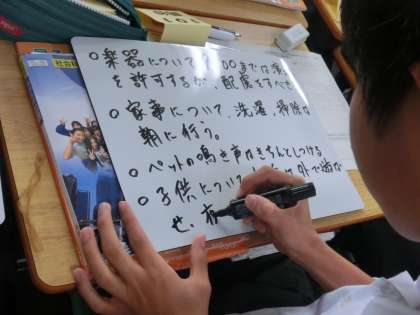 ○楽器について、 00までは演
を許可するが、配慮をすべき
○家事について、洗濯、掃除は
朝に行う。
○ペットの鳴き声はきちんとしつける
○子供につい 外で遊ば
せ、夜
社会